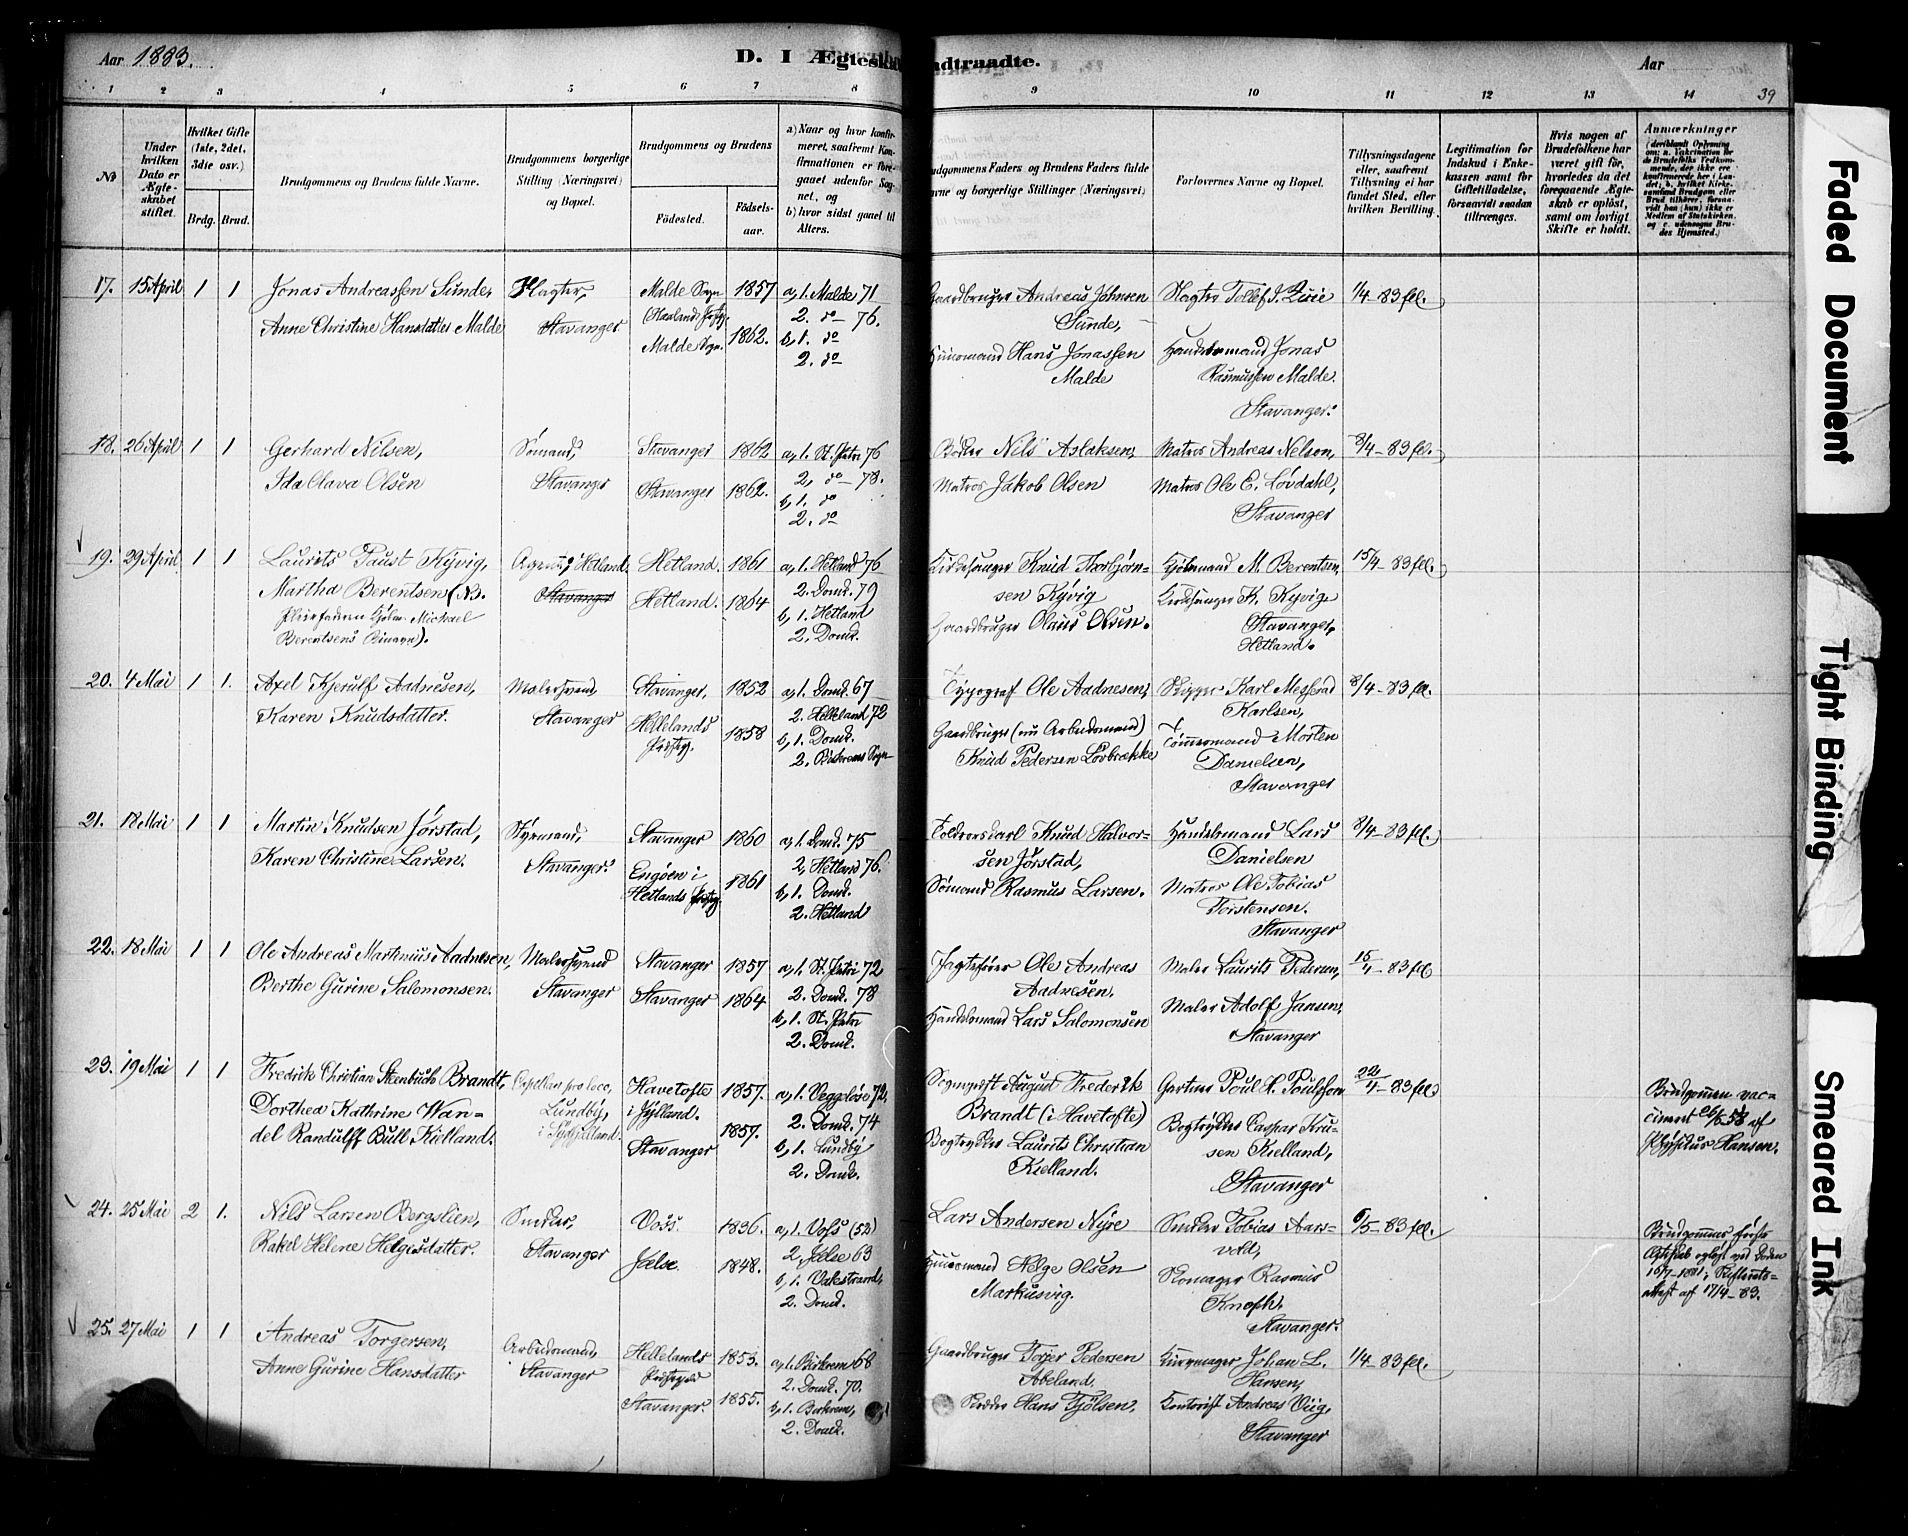 Aar 1883.
D. I Ægteska
ndtraadte.
Aar
39
1 2 3 4 5 6 7 8 9 10 11 12 13 14
No
Under hvilken Dato er Ægteskabet stiftet.
Hvilket Gifte (1ste, 2det, 3die osv.)
Brdg. Brud.
Brudgommens og Brudens fulde Navne.
Brudgommens borgerlige Stilling (Næringsvei) og Bopæl.
Brudgommens og Brudens
Fødested.
Fødselsaar.
a) Naar og hvor konfirmeret, saafremt Konfirmationen er foregaaet udenfor Sognet, og
b) hvor sidst gaaet til Alters.
udgommens Faders og Brudens Faders fulde
vne og borgerlige Stillinger (Næringsvei)
Forlovernes Navne og Bopæl.
Tillysningsdagene eller, saafremt Tillysning ei har fundet Sted, efter hvilken Bevilling.
Legitimation for Indskud i Enkekassen samt for Giftetilladelse, forsaavidt saadan tiltrænges.
Hvis nogen af Brudefolkene har været gift før, hvorledes da det foregaaende Ægteskab er opløst, samt om lovligt Skifte er holdt.
Anmærkninger (deriblandt Oplysning om: a. Vakcination for de Brudefolks Vedkommende, der ikke ere konfirmerede her i Landet; b. hvilket Kirkesamfund Brudgom eller Brud tilhører, forsaavidt han (hun) ikke er Medlem af Statskirken, og c. udensogns Brudes Hjemsted.)
17. 15 April 1 1 Jonas Andreassen Sunde, Slagter, Malde Sogn 1857 a, 1. Malde 71
Gaardbruger Andreas Johnsen Slagter Tollef J. 1/4-83 fl.
Anne Christine Hansdatter Malde Stavanger Malde Sgn. 1862. 2. do 76.
Sunde,
b, 1. do
2. do
Huusmand Hans Jonassen Handelsmand Jonas
Malde Rasmussen Malde.
Stavanger.
18. 26 April 1 1 Gerhard Nilsen, Sømand, Stavanger 1862 a, 1. St. Petri 76
Bødker Nils Aslaksen, Matros Andreas Nelson, 8/4-83 fl.
Ida Olava Olsen Stavanger Stavanger 1862. 2, do 78.
b, 1. do
2. do
Matros Jakob Olsen Matros Ole E. Løvdahl,
Stavanger
19. 29 April 1 1 Laurits Faust Kyvig, Agent, Hetland Hetland. 1861 a, 1. Hetland 76
Kirkesanger Knud Thorbjørn- M. Berentsen, 15/4-83 fl.
Martha Berentsen (N. Stavanger Hetland. 1864 2. Domk. 79
sen Kyvig Kirkesanger K. Kyvig
Pleiefaderen Michael b, 1. Hetland
Berentsens 2. Domk.
Gaardbruger Olaus Olsen. Stavanger,
Hetland.
20. 4 Mai 1 1. Axel Kjerulf Aadnesen, Malersvend, Stavanger, 1852 a, 1. Domk. 67
Typograf Ole Aadnesen, Skipper Karl 8/4-83 fl.
Karen Knudsdatter. Stavanger Hellelands Prstgj. 1858 2. Helleland 72
Karlsen,
b, 1. Domk.
2. Birkrems Sogn
Gaardbruger (nu Arbeidsmand) Tømmermand Morten
Knud Pedersen Løvbrække Danielsen,
Stavanger
21. 18 Mai 1 1 Martin Knudsen Jørstad, Styrmand, Stavanger 1860 a, 1. Domk. 75
Knud Halvor- Handelsmand Lars 8/4-83 fl.
Karen Christine Larsen. Stavanger. Engøen i Hetlands Prstgj. 1861 2. Hetland 76.
sen Jørstad, Danielsen
b, 1. Domk.
2. Hetland
Sømand Rasmus Larsen. Matros Ole Tobias
Torstensen.
Stavanger
22. 18 Mai 1 1 Ole Andreas Martinius Aadnesen, Malersvend Stavanger 1857 a, 1. St. Petri 72
Jagtefører Ole Andreas Maler Laurits Pedersen, 15/4-83 fl
Berthe Gurine Salomonsen. Stavanger Stavanger 1864 2. Domk. 78
Aadnesen. Maler Adolf Jansen,
b, 1. St. Petri
2. Domk.
Handelsmand Lars Salomonsen Stavanger
23. 19 Mai 1 1 Fredrik Christian Steenbuch Brandt, Capellan pro loco, Havetofte 1857. a, 1. Veggeløse 72,
Sogneprest August Frederik Gartner Poul H. Poulsson 22/4-83 fl.
Dorthea Kathrine Wan- Lundby, i Jylland. 2. Domk. 74
Brandt (i Havetofte) Bogtrykker Caspar Kru-
del Randulff Bull Kielland. Stavanger 1857. b, 1. Lundby
2. Domk.
Bogtrykker Laurits Christian sen Kielland,
Kielland. Stavanger
Brudgommen vac-
cineret 26/5 58 af
Physikus Hansen.
24. 25 Mai 2 1. Nils Larsen Bergslien, Smed, Voss. 1836. a, 1. Voss (52)
Lars Andersen Nyre Tobias Aars- 6/5-83 fl.
Rakel Helene Helgesdatter. Stavanger Jelse. 1848. 2. Jelse 63
vold,
b, 1. Valestrand,
2. Domk.
Huusmand Helge Olsen Skomager Rasmus
Markusvig. Knoph.
Stavanger.
Brudgommens første
Ægteskab opløst ved Døden
16/7-1881; Skifterets-
attest af 17/4-83.
25. 27 Mai 1 1 Andreas Torgersen, Arbeidsmand, Hellelands 1853. a, 1. Birkrem 68
Gaardbruger Torjer Pedersen Johan L. 1/4-83 fl.
Anne Gurine Hansdatter Stavanger Stavanger. 1855. 2. Domk. 70.
Abeland. Hansen,
b, 1. Birkrem,
2. Domk.
Hans Tjølsen, Kontorist Andreas Viig,
Stavanger
Faded Document
Tight Binding
Smeared Ink